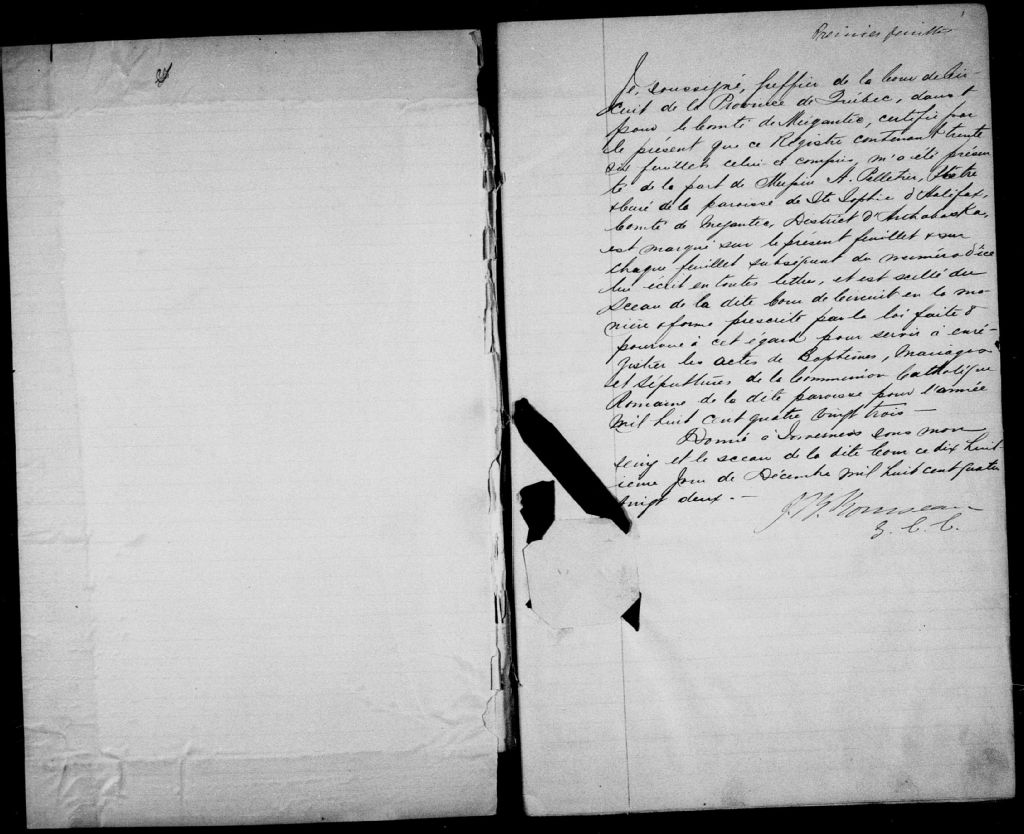 Premier feuillet
Je, soussigné, greffier de la Cour de Cir-
cuit de la Province de Québec, dans &
pour le Comté de Mégantic, certifie par
le présent que ce Registre contenant trente
six feuillets celui ci compris, m'a été présen
té de la part de Messire A. Pelletier, Ptre
& Curé de la paroisse de Ste Sophie d'Halifax,
Comté de Mégantic, District d'Arthabaska,
est marqué sur le présent feuillet & sur
chaque feuillet subséquent du numéro d'ice
lui écrit en toutes lettres, et est scellé du
sceau de la dite Cour de Circuit en la ma
nière & forme prescrite par la loi faite &
pourvue à cet égard pour servir à enré-
gistrer les actes de Baptêmes, Mariages
et Sépultures de la Communion Catholique
Romaine de la dite paroisse pour l'année
mil huit cent quatre vingt trois —
Donné à Inverness sous mon
seing et le sceau de la dite Cour ce dix huit
ième jour de Décembre mil huit cent quatre
vingt deux. —
Rousseau
G. C. C.